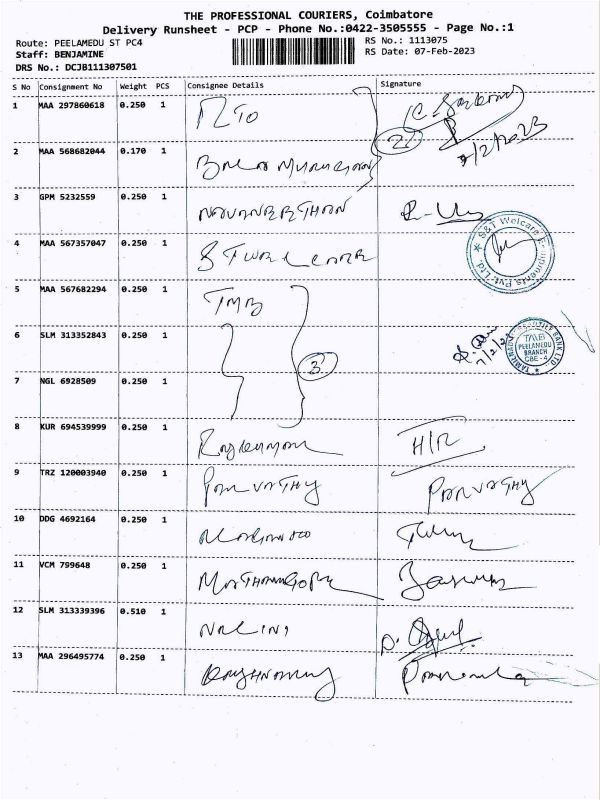 THE PROFESSIONAL COURIERS, Coimbatore
Delivery Runsheet - PCP - Phone No.:0422-3505555 - Page No.:1
Route: PEELAMEDU ST PC4
RS No.: 1113075
Staff: BENJAMINE
RS Date: 07-Feb-2023
DRS No.: DCJB111307501
S No Consignment No Weight PCS Consignee Details Signature
1 MAA 297860618 0.250 1 RTO
2 MAA 568682044 0.170 1 2 7/2/2023
3 GPM 5232559 0.250 1 NAVANEETHAN
4 MAA 567357047 0.250 1 S&T Welcare Equipments Pvt. Ltd.
5 MAA 567682294 0.250 1 TMB
6 SLM 313352843 0.250 1 3 TMB PEELAMEDU BRANCH CBE - 4
7 NGL 6928509 0.250 1
8 KUR 694539999 0.250 1 H/R
9 TRZ 120003940 0.250 1 PARVATHY PARVATHY
10 DDG 4692164 0.250 1
11 VCM 799648 0.250 1
12 SLM 313339396 0.510 1 NALINI
13 MAA 296495774 0.250 1